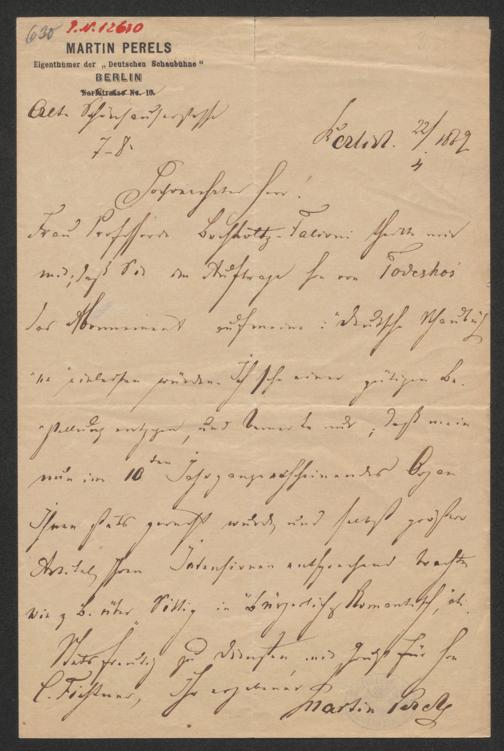 630 I.N. 12630
MARTIN PERELS
Eigenthümer der „Deutschen Schaubühne"
BERLIN
Karlstrasse No. 10.
Alte Schönhauserstrasse
7–8.
Berlin. 22/4 1869
Hochverehrter Herr!
Frau Professorin Bochkoltz-Falconi theilte mir
mit, daß Sie im Auftrage He von Todeskos
das Abonnement auf meine: "Deutsche Schaubüh
ne" würden. Ich sehe einer gütigen Be-
stellung entgegen, und bemerke nur, daß mein
nun im 10ten Jahrgang erscheinendes Organ
Ihnen stets gerecht wurde und selbst größere
Artikel, Ihren Intensionen entsprechend brachte
wie z. B. über "Bürgerlich & Romantisch", etc.
Stets freudig zu Diensten mit Gruß für He
C. Fichtner, Ihr ergebener
Martin Perels